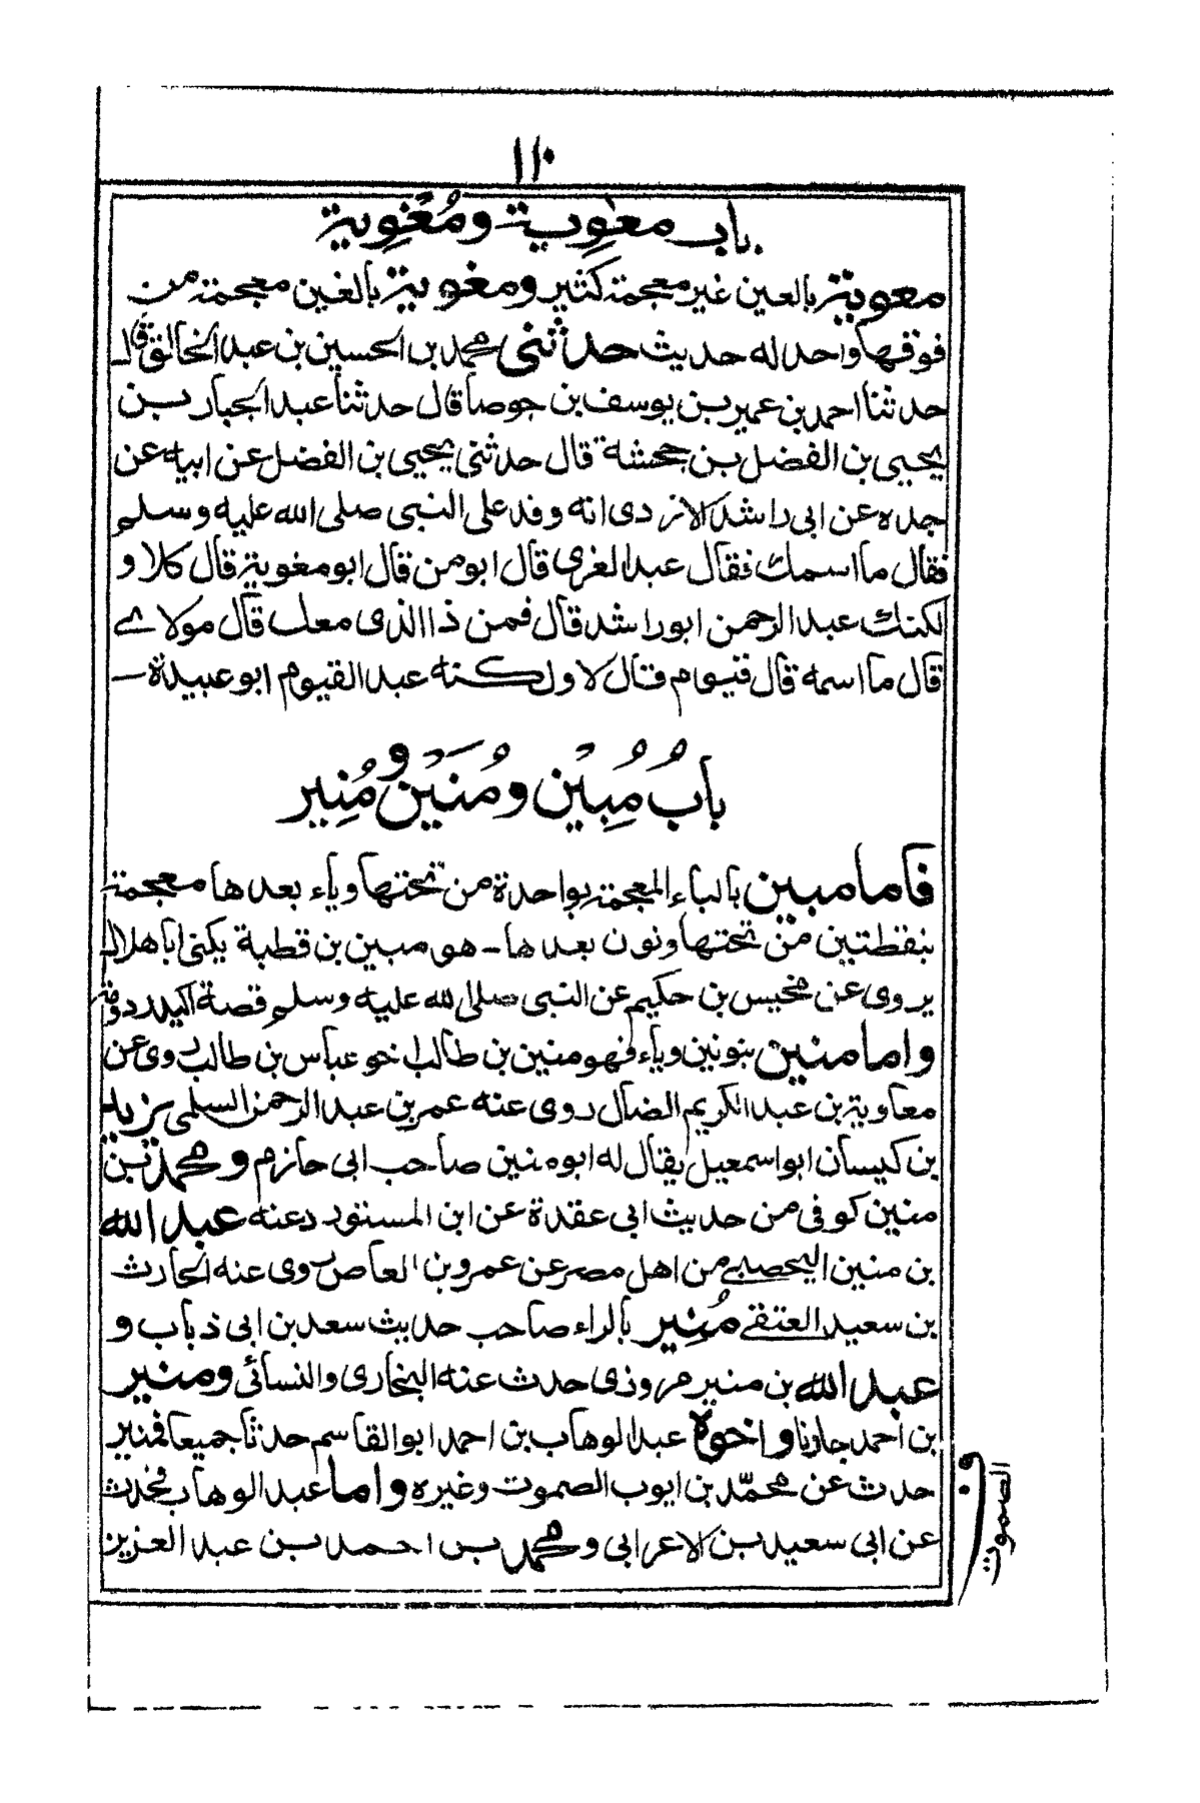 ١١٠
باب معوية ومُغْوِية
معوية بالعين غير معجمة كثير ومغوية بالغين معجمة من
فوقها واحد له حديث حدثنى محمد بن الحسين بن عبد الخالق قال
حدثنا احمد بن عمير بن يوسف بن جوصا قال حدثنا عبد الجبار بن
يحيى بن الفضل بن جحشنة قال حدثنى يحيى بن الفضل عن ابيه عن
جده عن ابى راشد الازدى انه وفد على النبى صلى الله عليه وسلم
فقال ما اسمك فقال عبد الغزى قال ابو من قال ابو مغوية قال كلا و
لكنك عبد الرحمن ابو راشد قال فمن ذا الذى معك قال مولاى
قال ما اسمه قال قيوم قال لا ولكنه عبد القيوم ابو عبيدة
بابُ مُبِيْن ومُنَيْن ومُنِير
فاما مبين بالباء المعجمة بواحدة من تحتها وياء بعدها معجمة
بنقطتين من تحتها ونون بعدها - هو مبين بن قطبة يكنى ابا هلال
يروى عن مخيس بن حكيم عن النبى صلى الله عليه وسلم قصة اكيدر دومة
واما منين بنونين وياء فهو منين بن طالب اخو عباس بن طالب روى عن
معاوية بن عبد الكريم الضال روى عنه عمر بن عبد الرحمن السلمى يزيد
بن كيسان ابو اسمعيل يقال له ابو منين صاحب ابى حازم ومحمد بن
منين كوفى من حديث ابى عقدة عن ابن المستورد عنه عبد الله
بن منين اليحصبي من اهل مصر عن عمرو بن العاص روى عنه الحارث
بن سعيد العتقي مُنِير بالراء صاحب حديث سعد بن ابى ذباب و
عبد الله بن منير مروذى حدث عنه البخارى والنسائى ومنير
بن احمد جارنا واخوه عبد الوهاب بن احمد ابو القاسم حدثا جميعا فمنير
حدث عن محمّد بن ايوب الصموت وغيره واما عبد الوهاب فحدث
عن ابى سعيد بن الاعرابى ومحمد بن احمد بن عبد العزيز
الصموت